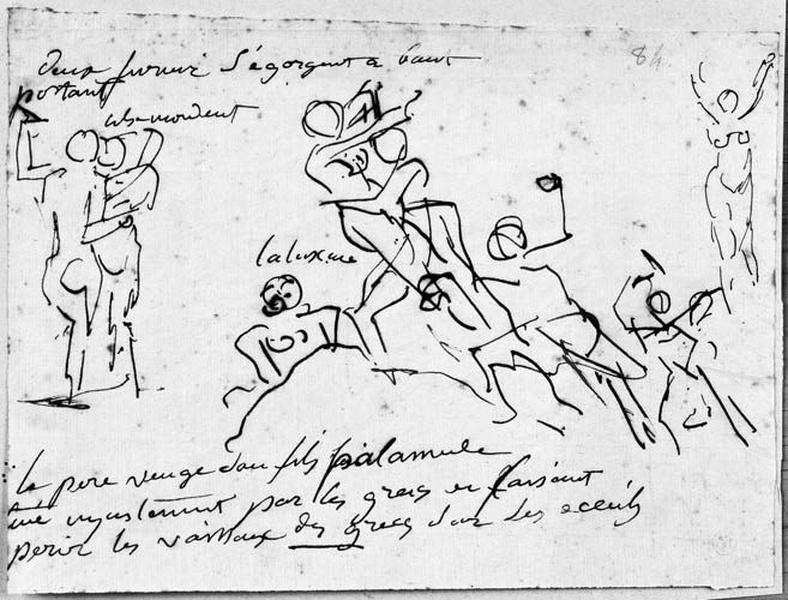 deux furour s'égorgent a baut
portant
ils mordent
84
la luxure
le pere venge dou fils palamede
tué injustement par les grecs en faisant
perir les vaisseaux des grecs sur les eceuils